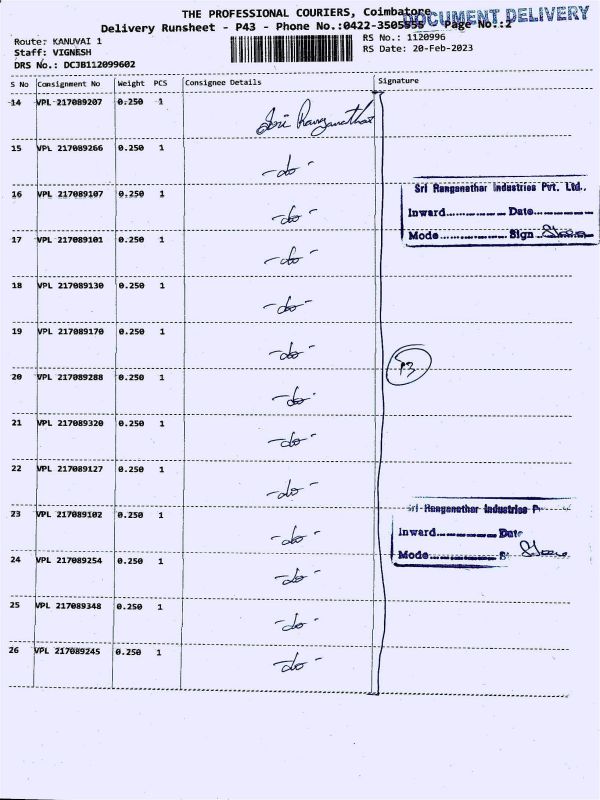 THE PROFESSIONAL COURIERS, Coimbatore
DOCUMENT DELIVERY
Delivery Runsheet - P43 - Phone No.:0422-3505955 Page No.:2
Route: KANUVAI 1
RS No.: 1120996
Staff: VIGNESH
RS Date: 20-Feb-2023
DRS No.: DCJB112099602
S No Consignment No Weight PCS Consignee Details Signature
14 VPL 217089207 0.250 1 Sri Ranganathar
15 VPL 217089266 0.250 1 -do-
16 VPL 217089107 0.250 1 -do-
Sri Ranganathar Industries Pvt. Ltd.,
Inward............... Date...............
Mode............... Sign Store
17 VPL 217089101 0.250 1 -do-
18 VPL 217089130 0.250 1 -do-
19 VPL 217089170 0.250 1 -do-
P3
20 VPL 217089288 0.250 1 -do-
21 VPL 217089320 0.250 1 -do-
22 VPL 217089127 0.250 1 -do-
23 VPL 217089102 0.250 1 -do-
Sri Ranganathar Industries P
Inward............... Date
Mode............... S Store
24 VPL 217089254 0.250 1 -do-
25 VPL 217089348 0.250 1 -do-
26 VPL 217089245 0.250 1 -do-